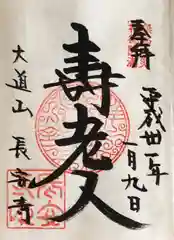 奉拝
平成廿一年
一月九日
寿老人
大道山 長安寺